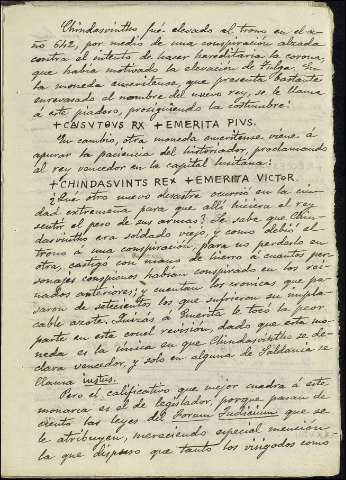 Chindasvintho fué elevado al trono en el a-
ño 642, por medio de una conspiración alzada
contra el intento de hacer hereditaria la corona,
que habia motivado la elevación de Tulga. En
la moneda emeritense, que presenta bastante
enrevesado el nombre del nuevo rey, se le llama
á este piadoso, prosiguiendo la costumbre:
+CNSVTOVS RX +EMERITA PIVS.
En cambio, otra moneda emeritense viene á
apurar la paciencia del historiador, proclamando
al rey vencedor en la capital lusitana:
+CHINDASVINTS REX +EMERITA VICTOR.
¿Que otro nuevo desastre ocurrió en la ciu-
dad extremeña para que allí hiciera el rey
sentir el peso de sus armas? Se sabe que Chin-
dasvintho era soldado viejo, y como debió el
trono á una conspiración, para no perderlo en
otra, castigó con mano de hierro á cuantos per-
sonajes conspicuos habian conspirado en los rei-
nados anteriores; y cuentan los cronicas que pa-
saron de setecientos los que sufrieron su impla-
cable azote. Quizás á Emerita le tocó la peor
parte en esta cruel revisión, dado que esta mo-
neda es la única en que Chindasvintho se de-
clara vencedor, y solo en alguna de Saldania se
llama iustus.
Pero el calificativo que mejor cuadra á este
monarca es el de legislador, porque pasan de
ciento las leyes del Forum Iudicium que se
le atribuyen, mereciendo especial mención
la que dispuso que tanto los visigodos como